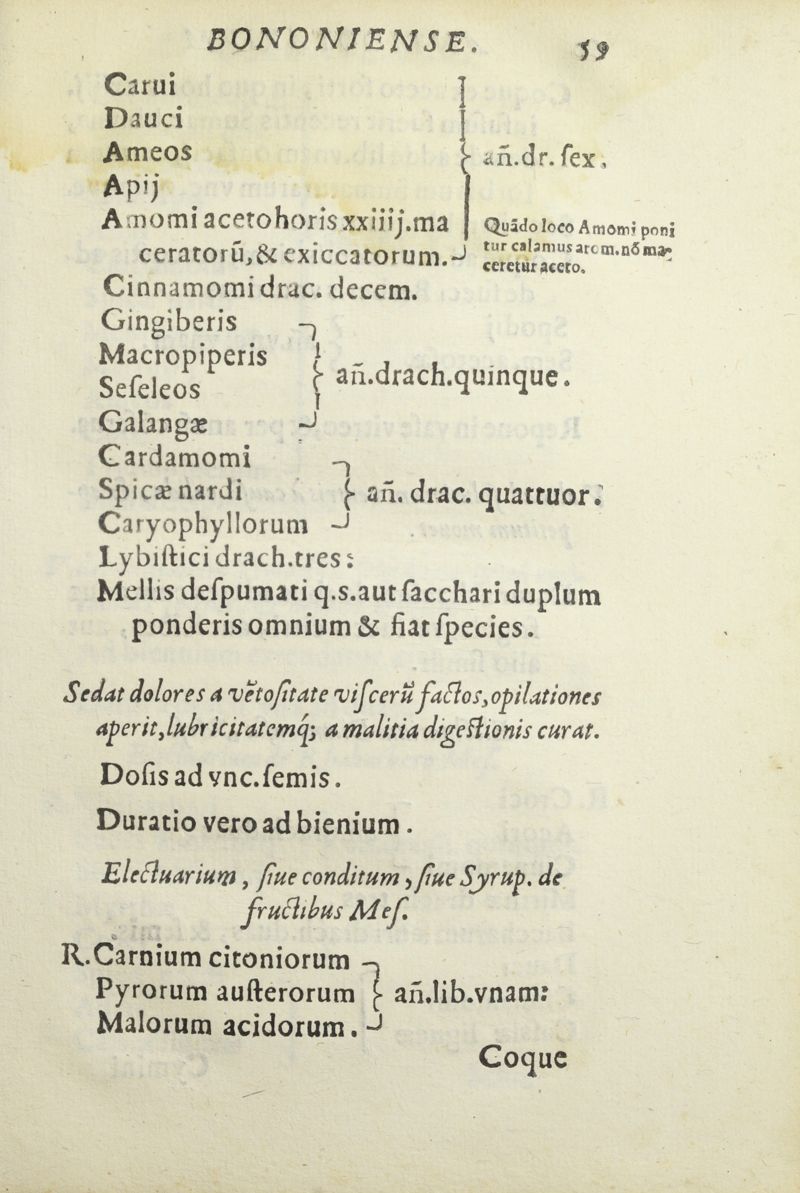 BONONIENSE. 59
Carui
Dauci
Ameos
añ.dr. ſex.
Apij
Amomi aceto horis xxiiij.ma
ceratorũ,& exiccatorum.
Quãdo loco Amomi poni
tur calamus arom.nõ ma-
ceretur aceto.
Cinnamomi drac. decem.
Gingiberis
Macropiperis
Seſeleos
Galangæ
añ.drach.quinque.
Cardamomi
Spicæ nardi
Caryophyllorum
añ. drac. quattuor.
Lybiſtici drach.tres:
Mellis deſpumati q.s.aut ſacchari duplum
ponderis omnium & fiat ſpecies.
Sedat dolores a vẽtoſitate viſcerũ factos,opilationes
aperit,lubricitatemq; a malitia digeſtionis curat.
Doſis ad vnc.ſemis.
Duratio vero ad bienium.
Electuarium, ſiue conditum, ſiue Syrup. de
fructibus Meſ.
R. Carnium citoniorum
Pyrorum auſterorum
Malorum acidorum.
añ.lib.vnam:
Coque